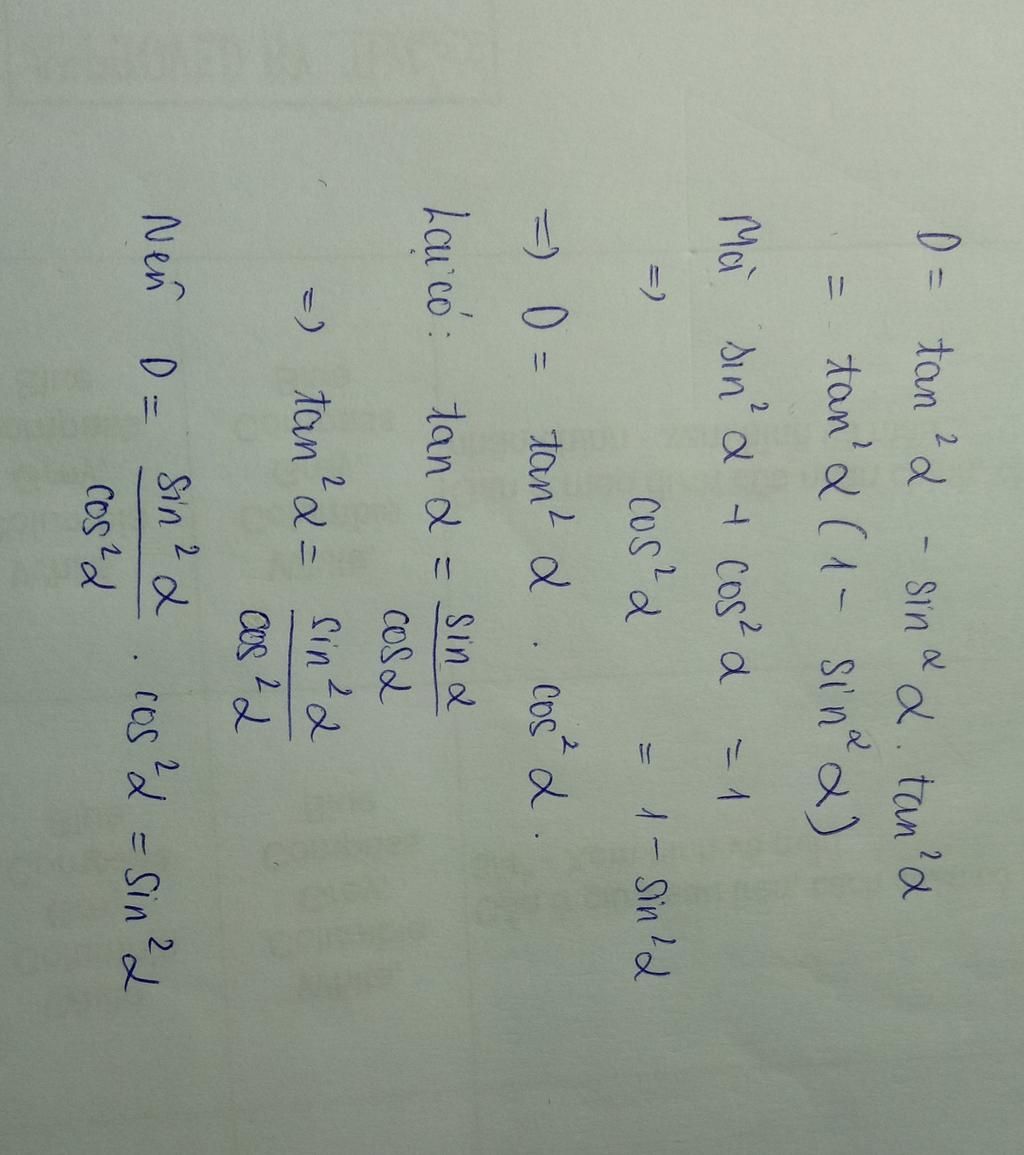 D = tan²α - sin²α . tan²α
= tan²α (1 - sin²α)
Mà sin²α + cos²α = 1
=> cos²α = 1 - sin²α
=> D = tan²α . cos²α .
Lại có: tan α = sin α / cos α
=> tan²α = sin²α / cos²α
Nên D = sin²α / cos²α . cos²α = sin²α